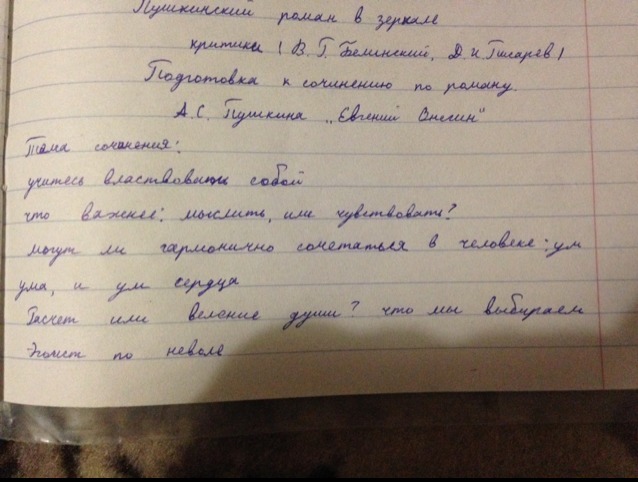 Пушкинский роман в зеркале
критики (В. Г. Белинский, Д. И. Писарев)
Подготовка к сочинению по роману.
А.С. Пушкина „Евгений Онегин"
Тема сочинения:
учитесь властвовать собой
что важнее: мыслить, или чувствовать?
могут ли гармонично сочетаться в человеке: ум
ума, и ум сердца
Расчет или веление души? что мы выбираем
Эгоист по неволе